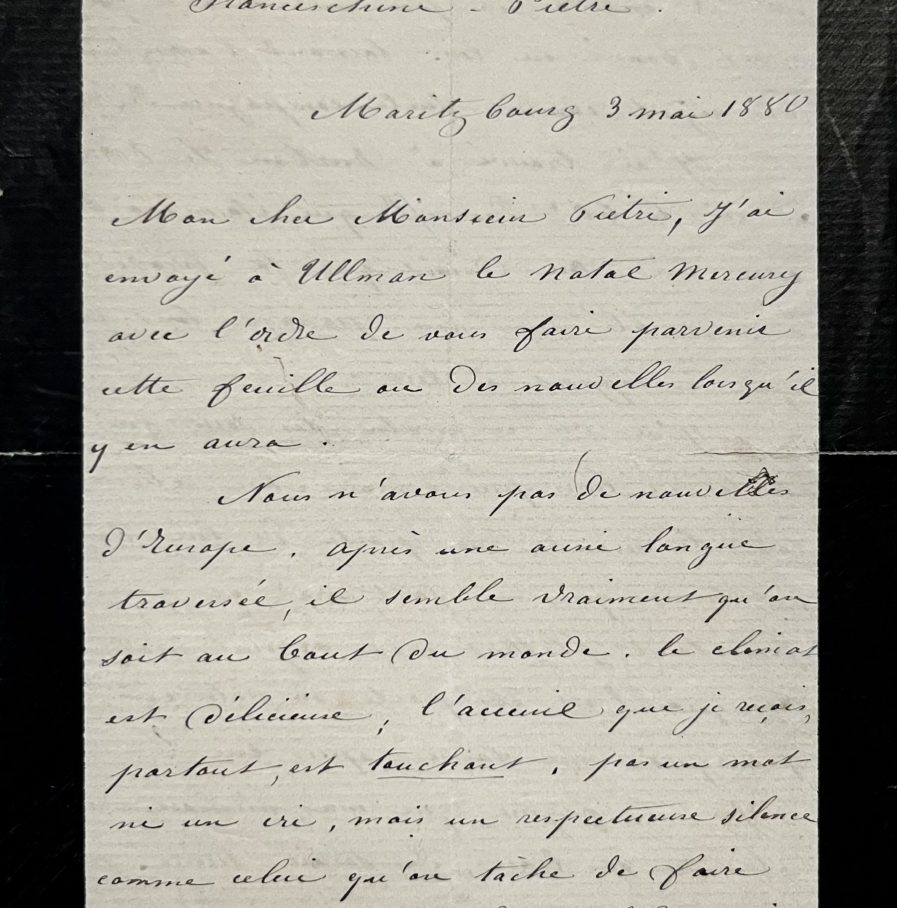 Franceschini - Pietri.
Maritzbourg 3 mai 1880
Mon cher Monsieur Pietri, J'ai
envoyé à Ullman le Natal Mercury
avec l'ordre de vous faire parvenir
cette feuille ou des nouvelles lorsqu'il
y en aura.
Nous n'avons pas de nouvelles
d'Europe. après une aussi longue
traversée, il semble vraiment qu'on
soit au bout du monde. le climat
est délicieuse, l'accueil que je reçois,
partout, est touchant, pas un mot
ni un cri, mais un respectueuse silence
comme celui qu'on tache de faire